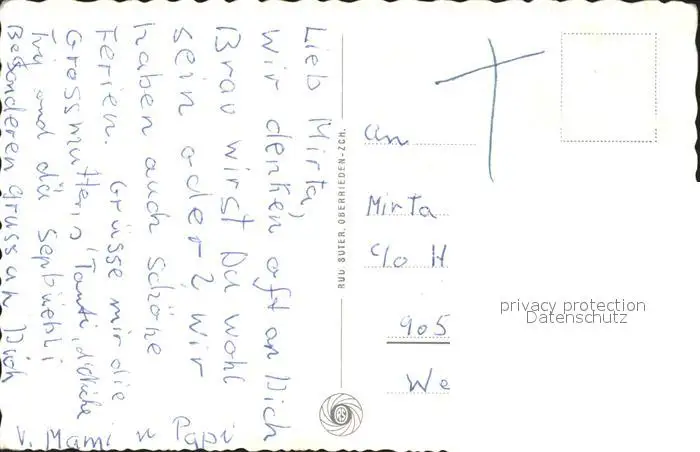 Lieb Mirta,
wir denken oft an Dich
Brav wirst Du wohl
sein oder? Wir
haben auch schöne
Ferien. Grüsse mir die
Grossmutter, Tanti,
Ivy und dä Sepbüebli
Besonderen Gruss an Dich
v. Mami u Papi
RUD. SUTER, OBERRIEDEN-ZCH.
RS
An
Mirta
c/o H
905
We
privacy protection
Datenschutz